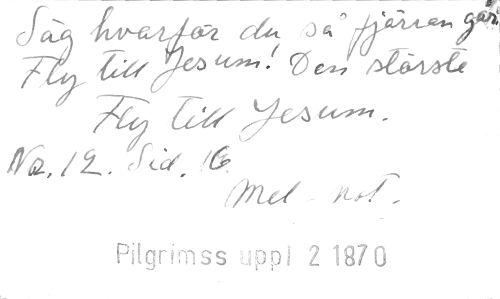 Säg hvarför du så fjärran går
Fly till Jesum! Den störste
Fly till Jesum.
No. 12. Sid. 16
Mel - not.
Pilgrimss uppl 2 1870